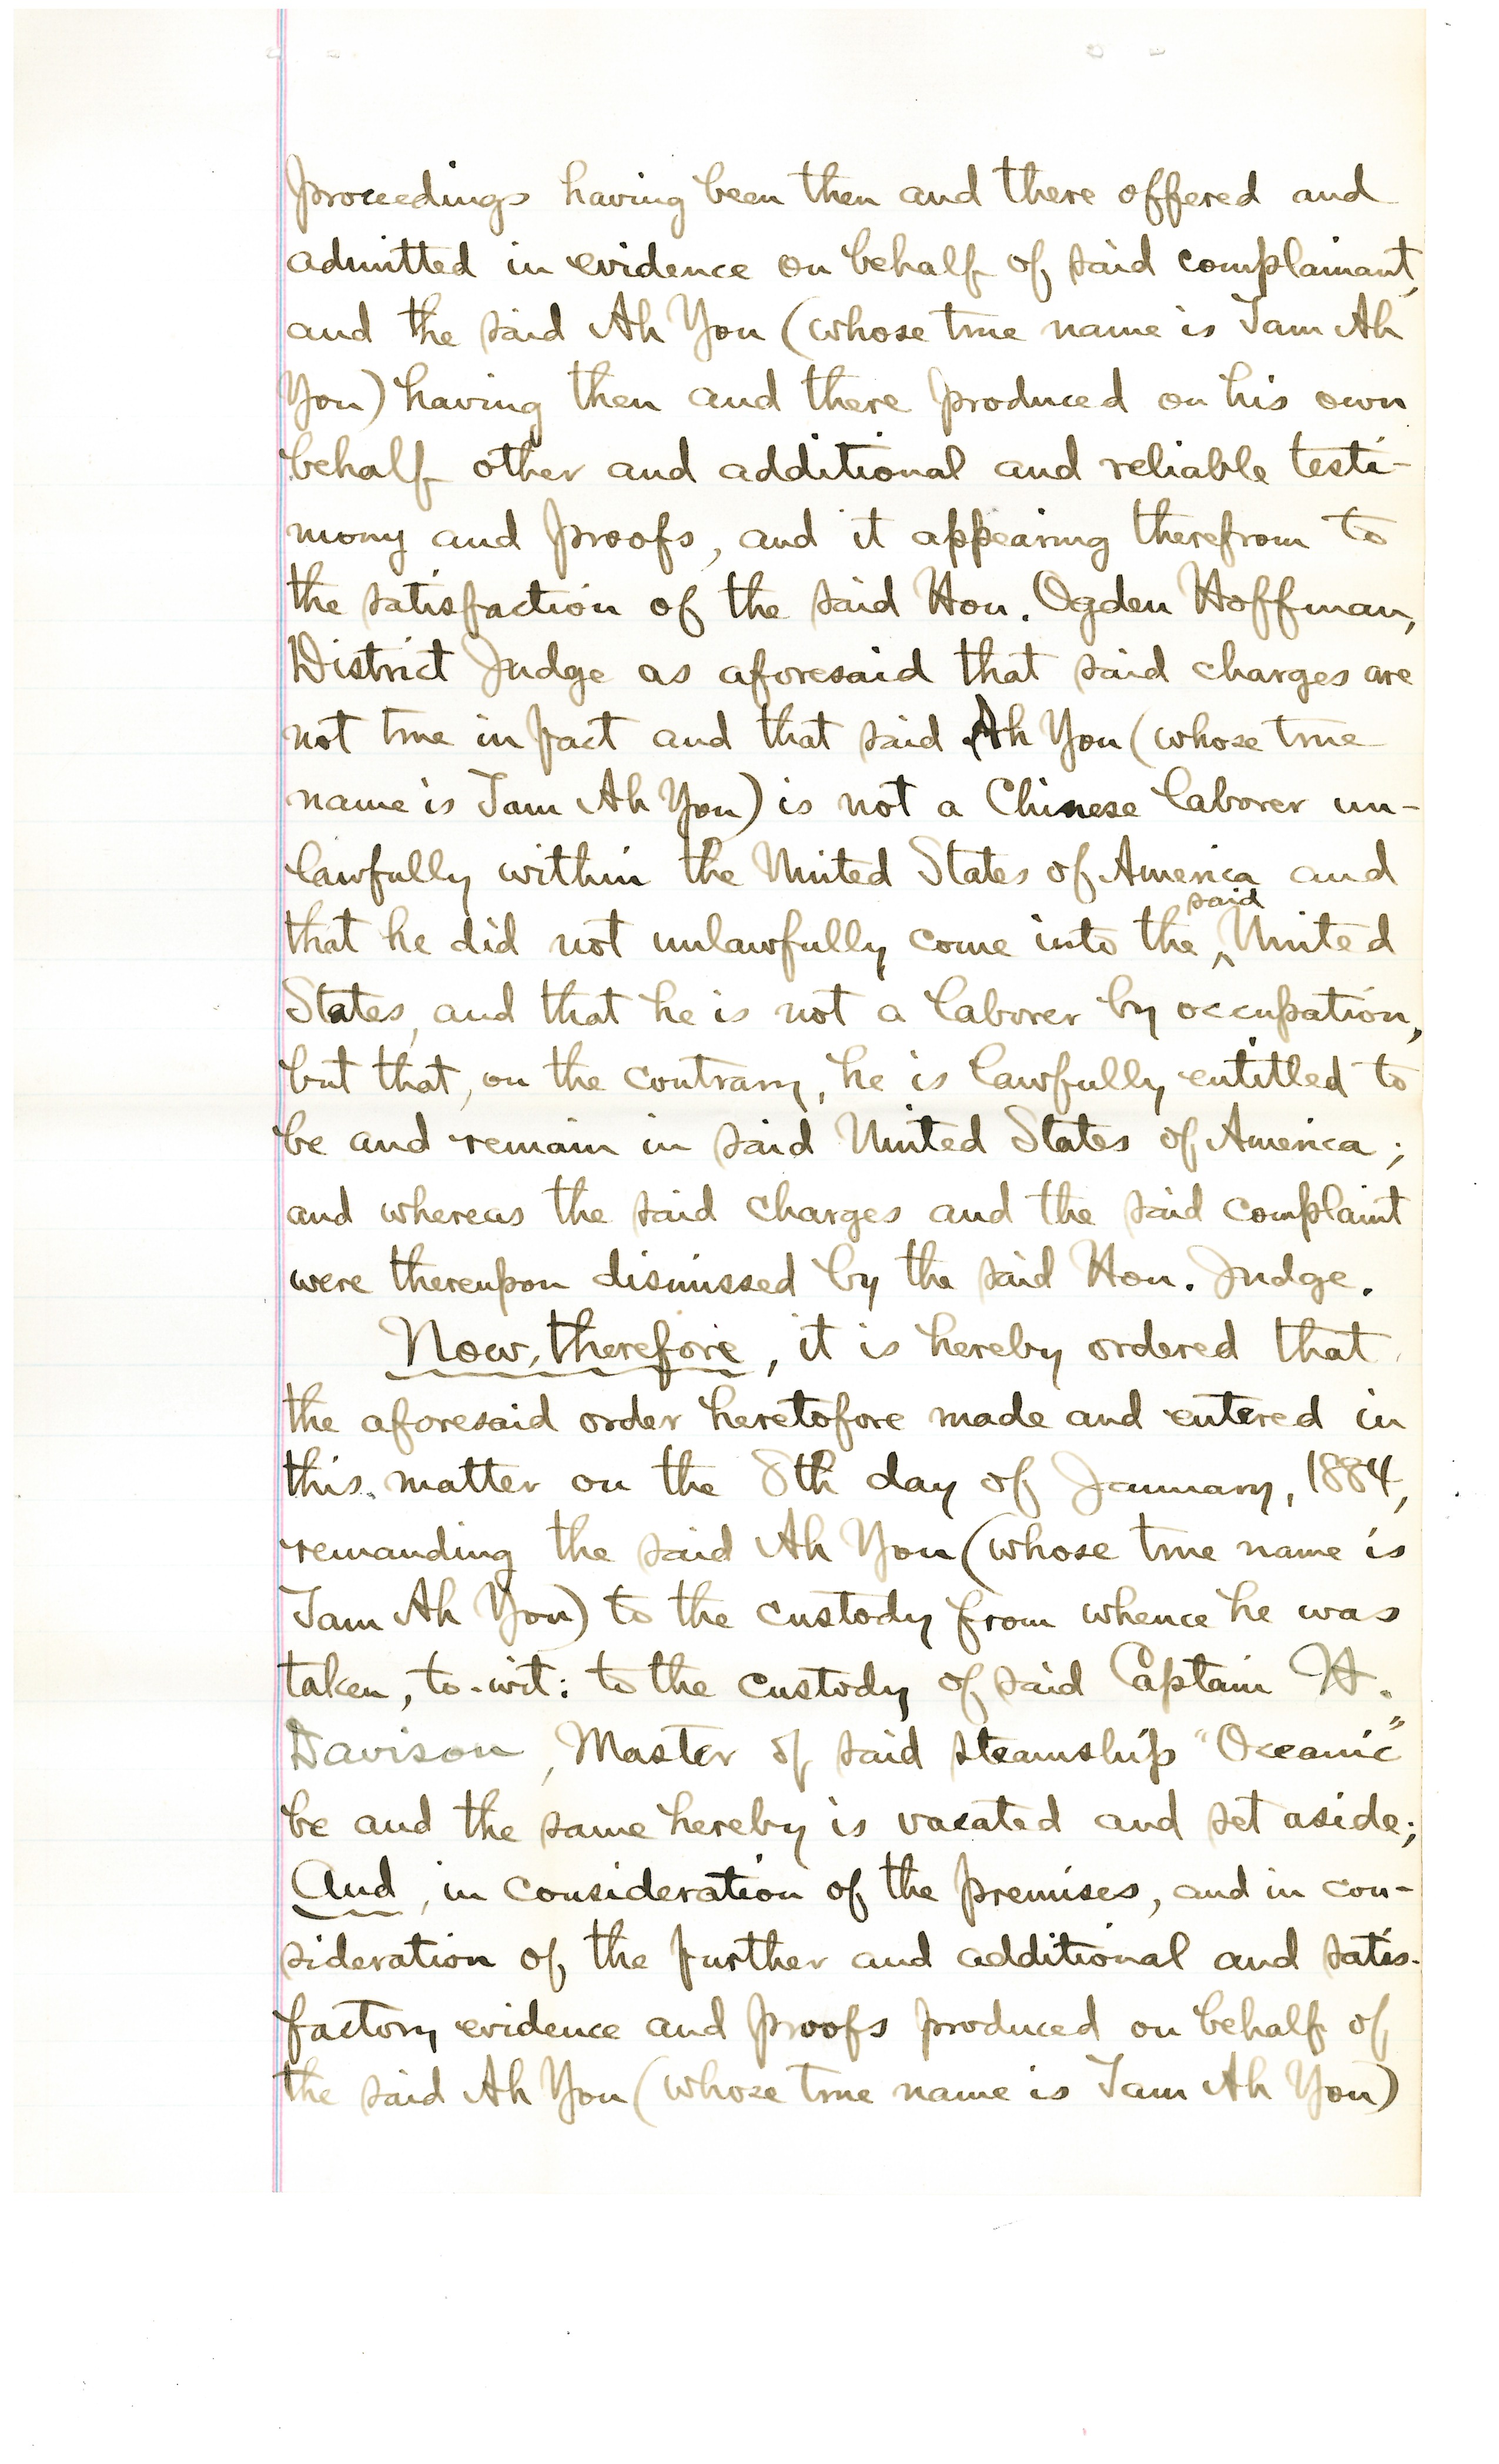 proceedings having been then and there offered and
admitted in evidence on behalf of said complainant,
and the said Ah You (whose true name is Tam Ah
You) having then and there produced on his own
behalf other and additional and reliable testi-
mony and proofs, and it appearing therefrom to
the satisfaction of the said Hon. Ogden Hoffman,
District Judge as aforesaid that said charges are
not true in fact and that said Ah You (whose true
name is Tam Ah You) is not a Chinese laborer un-
lawfully within the United States of America and
that he did not unlawfully come into the said United
States, and that he is not a laborer by occupation,
but that, on the contrary, he is lawfully entitled to
be and remain in said United States of America;
and whereas the said charges and the said complaint
were thereupon dismissed by the said Hon. Judge.
Now, therefore, it is hereby ordered that
the aforesaid order heretofore made and entered in
this matter on the 8th day of January, 1884,
remanding the said Ah You (whose true name is
Tam Ah You) to the custody from whence he was
taken, to-wit: to the custody of said Captain H.
Davison, Master of said steamship "Oceanic"
be and the same hereby is vacated and set aside;
And, in consideration of the premises, and in con-
sideration of the further and additional and satis-
factory evidence and proofs produced on behalf of
the said Ah You (whose true name is Tam Ah You)